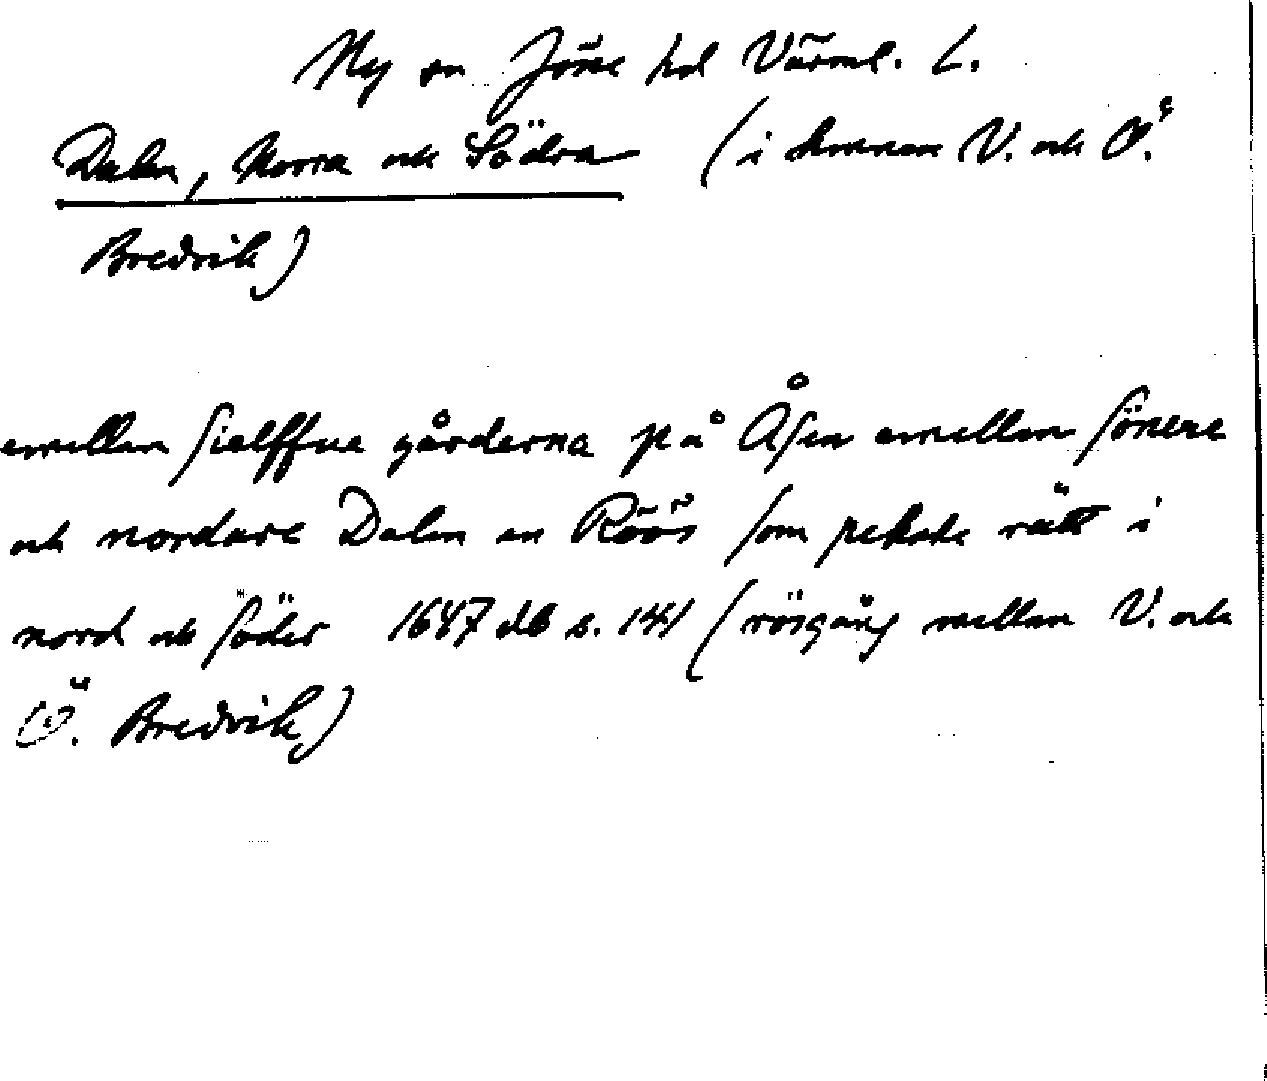 Ny sn Jösse hd Värml. L.
Dalen, Norra och Södra (i hemman V. och Ö.
Bredvik)
emellan sielffue gårderna på Åsen emellan sönere
och nordare Dalen en Röös som pekade rätt i
nord och söder 1647 db s. 141 (rösgång mellan V. och
Ö. Bredvik)